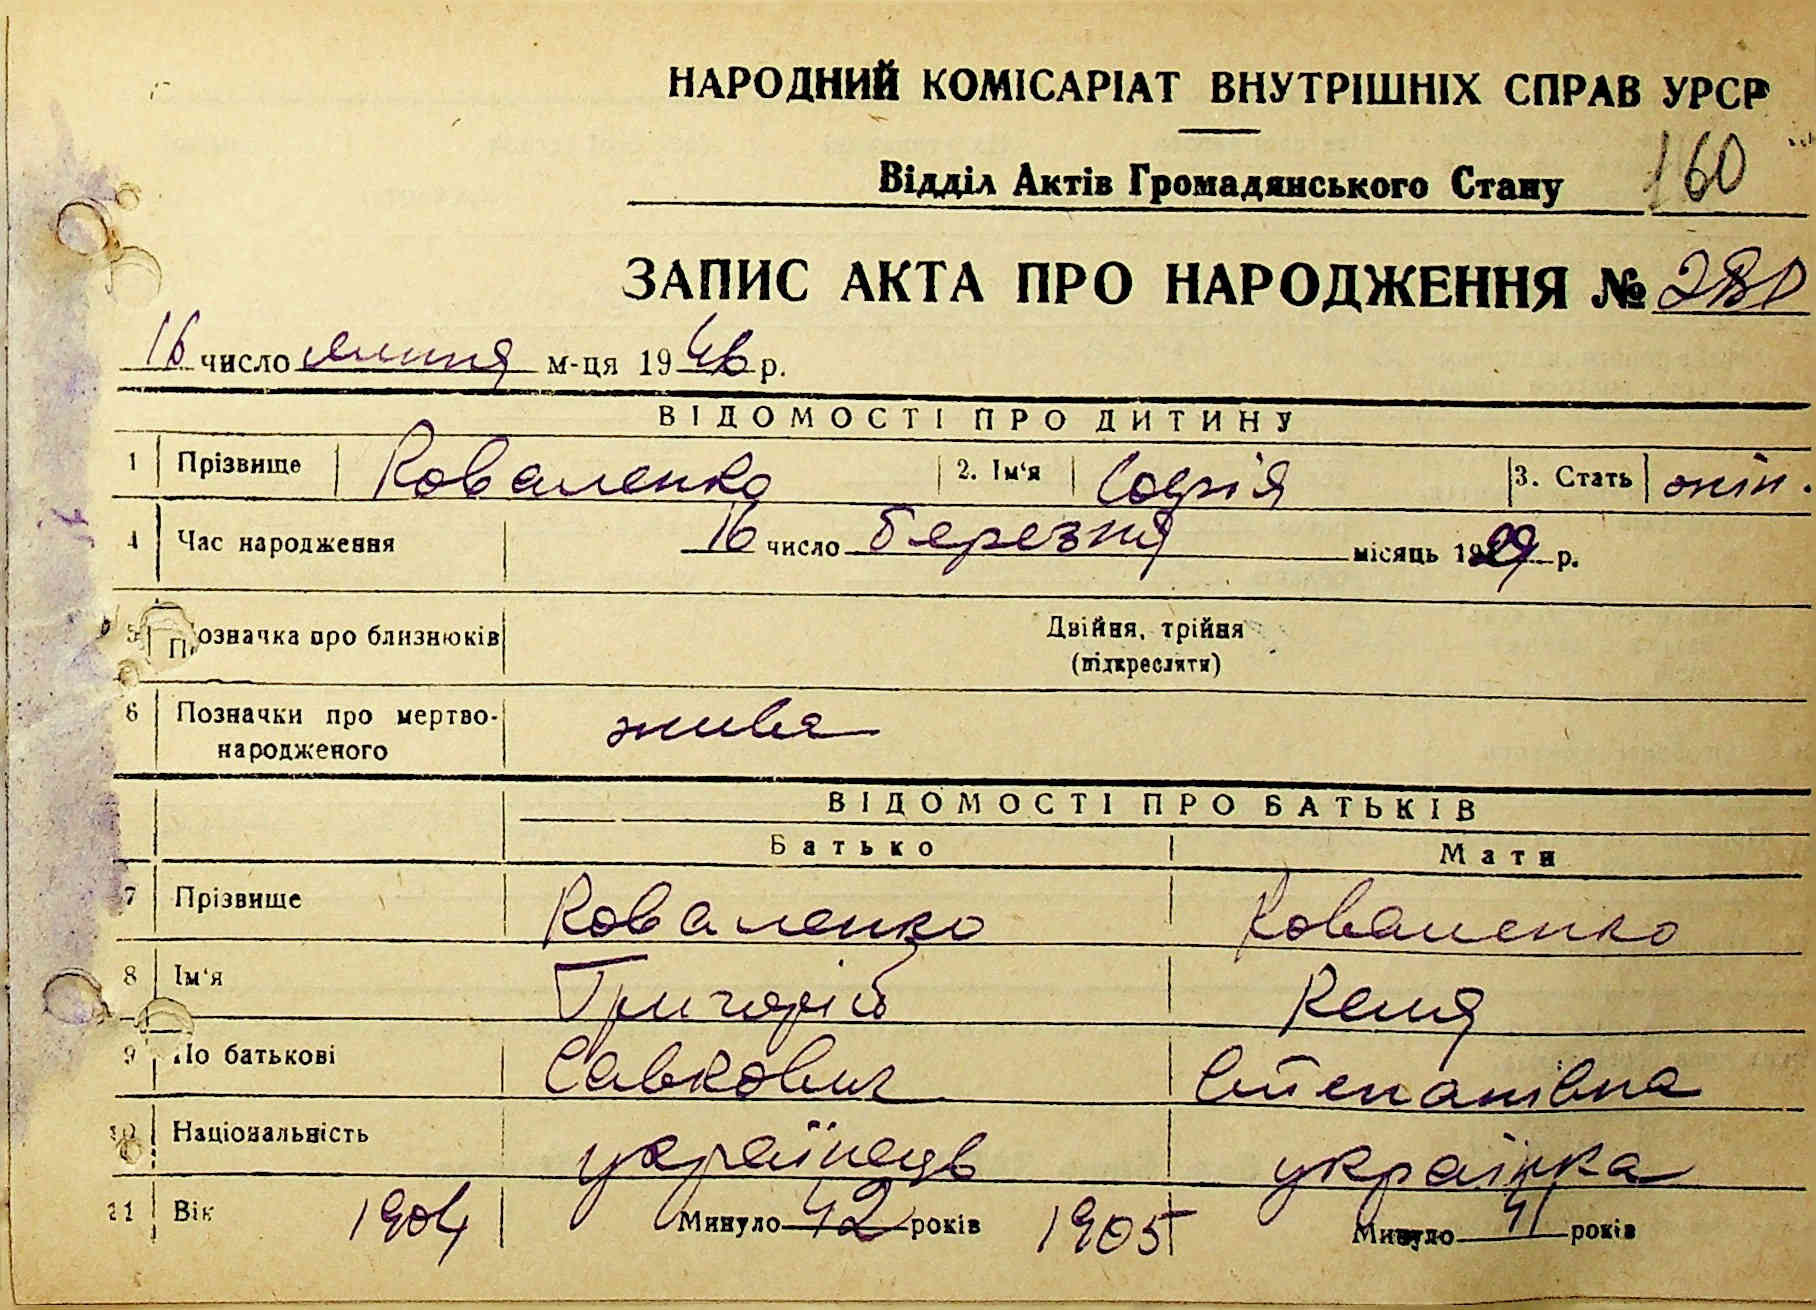 НАРОДНИЙ КОМІСАРІАТ ВНУТРІШНІХ СПРАВ УРСР
160
Відділ Актів Громадянського Стану
ЗАПИС АКТА ПРО НАРОДЖЕННЯ №
16 число липня м-ця 1946 р.
ВІДОМОСТІ ПРО ДИТИНУ
1 Прізвище Коваленко 2. Ім'я Софія 3. Стать жін.
4 Час народження 16 число березня місяць 1929 р.
5 Позначка про близнюків Двійня, трійня
(підкреслити)
6 Позначки про мертво-
народженого жива
ВІДОМОСТІ ПРО БАТЬКІВ
Батько Мати
7 Прізвище Коваленко Коваленко
8 Ім'я Григорій Келя
9 По батькові Савкович Степанівна
10 Національність українець українка
11 Вік 1904 Минуло 42 років 1905 Минуло 41 років